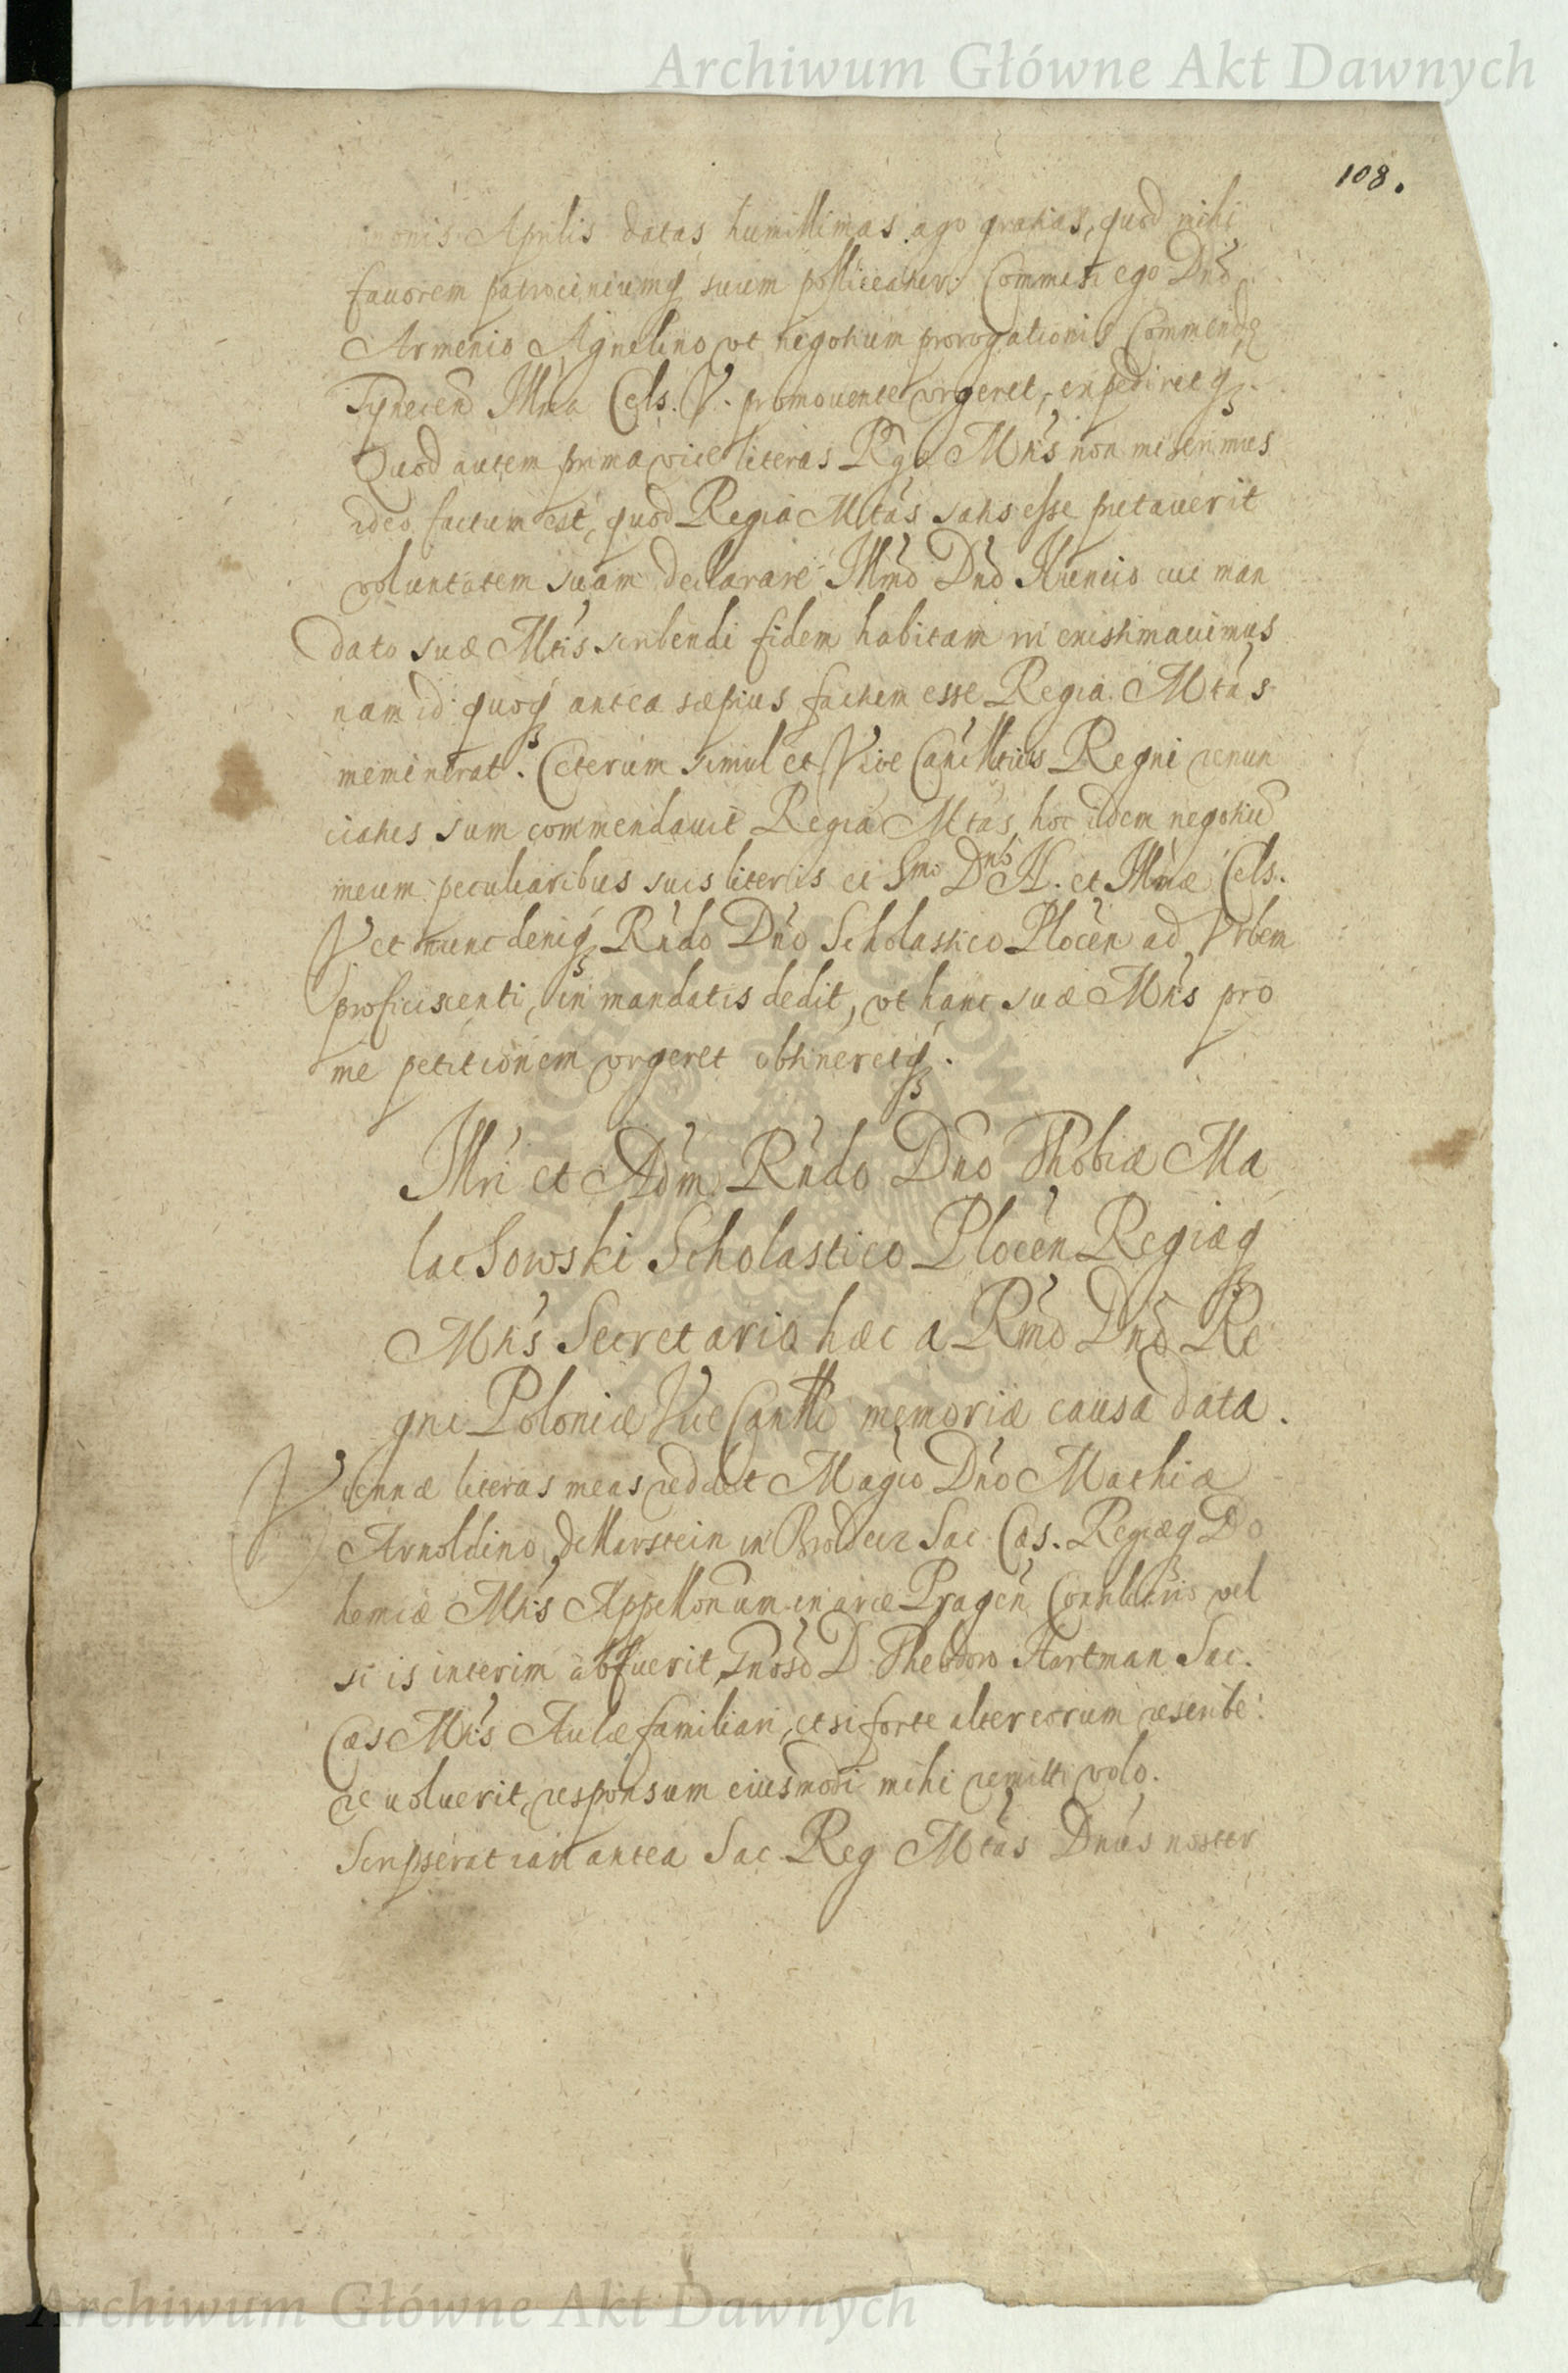 Archiwum Główne Akt Dawnych
108.
Aprilis datas humillimas ago gratias, quod mihi
favorem patrociniumq suum polliceatur. Commisi ego Dno
Armenio Agnelino vt negotium prorogationis Commendæ
Tynecen Illma Cels. V. promouente vrgeret, expediretq.
Quod autem prima vice literas Rgæ Mtis non miserimus
ideo factum est, quod Regia Mtas satis esse putauerit
voluntatem suam declarare Illmo Dno Nuncio cui man
dato suæ Mtis scribendi fidem habitam iri existimauimus
nam id quoq antea sæpius factum esse Regia Mtas
meminerat. Ceterum simul et Vice Cancllrius Regni renun
ciatus sum commendauit Regia Mtas hoc idem negotiu
meum peculiaribus suis literis et Smo Dno N. et Illmæ Cels.
V et nunc deniq Rndo Dno Scholastico Plocen ad Vrbem
proficiscenti, in mandatis dedit, vt hanc suæ Mtis pro
me petitionem vrgeret obtineretq.
Illri et Adm Rndo Dno Thobiæ Ma
lachowski Scholastico Plocen Regiæq
Mtis Secretario hæc a Rmo Dno Re
gni Poloniæ Vice Canllro memoriæ causa data.
Viennæ literas meas reddet Magco Dno Mathiæ
Arnoldino de Clarstein in Sac. Cæs. Regiæq Bo
hemiæ Mtis Appellonum in arce Pragen Consiliario vel
si is interim abfuerit, Gnoso D. Theodoro Hartman Sac.
Cæs Mtis Aulæ familiari, et si forte alter eorum rescribe
re voluerit, responsum eiusmodi mihi remitti volo.
Scripserat iam antea Sac Reg Mtas Dnus noster
Archiwum Główne Akt Dawnych